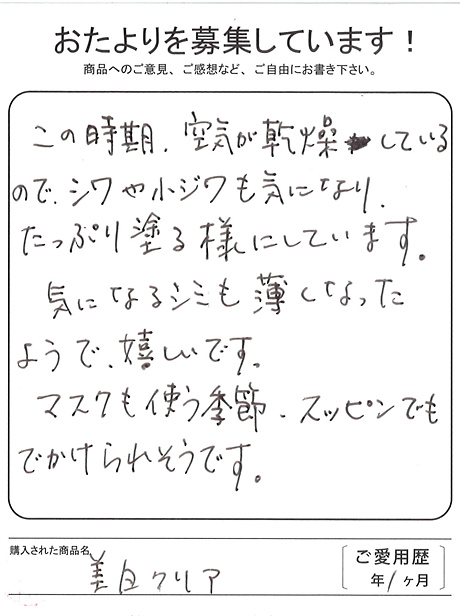 おたよりを募集しています！
商品へのご意見、ご感想など、ご自由にお書き下さい。
この時期、空気が乾燥している
ので、シワや小ジワも気になり、
たっぷり塗る様にしています。
気になるシミも薄くなった
ようで、嬉しいです。
マスクも使う季節、スッピンでも
でかけられそうです。
購入された商品名
美白クリア
ご愛用歴
年/1ヶ月